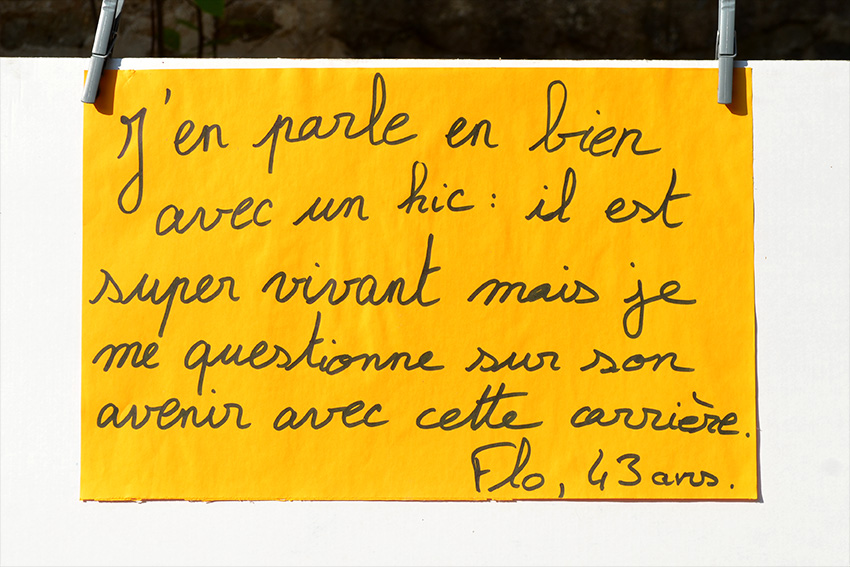 J'en parle en bien
avec un hic : il est
super vivant mais je
me questionne sur son
avenir avec cette carrière.
Flo, 43 ans.